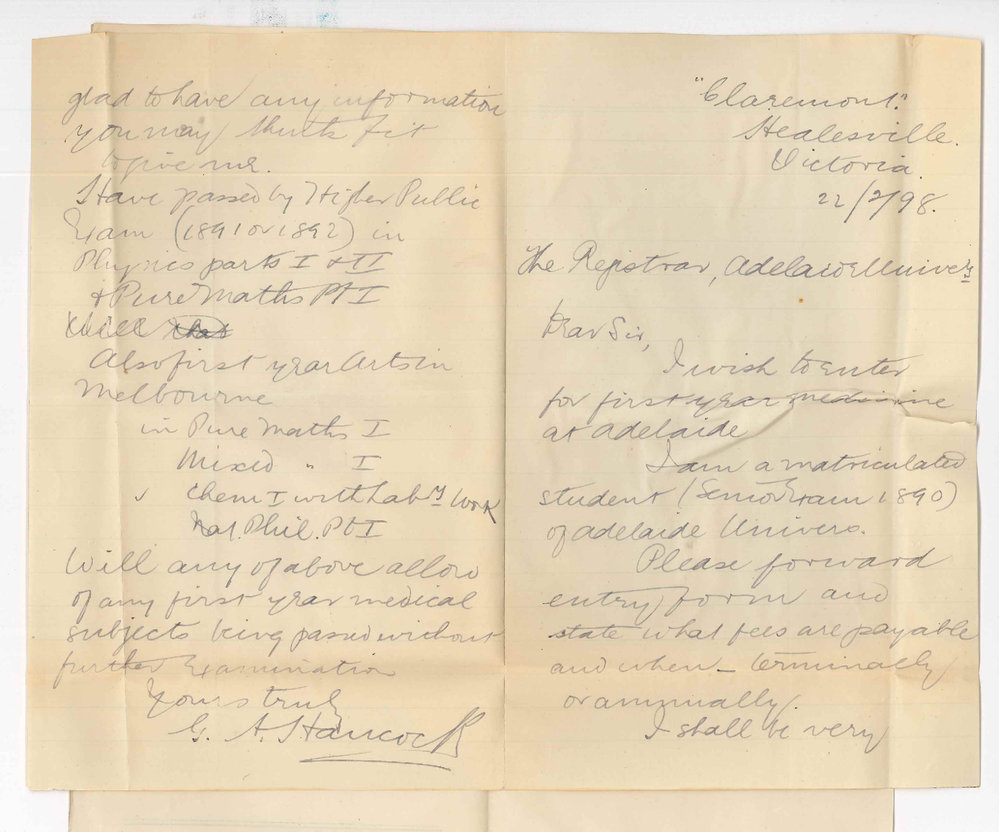 "Claremont."
Healesville.
Victoria.
22/2/98.
The Registrar, Adelaide Univers'y
Dear Sir,
I wish to enter
for first year medicine
at Adelaide
I am a matriculated
student (Senior Exam 1890)
of Adelaide Univers.
Please forward
entry form and
state what fees are payable
and when – terminally
or annually.
I shall be very
glad to have any information
you may think fit
to give me.
Have passed by Higher Public
Exam (1891 or 1892) in
Physics parts I & II
& Pure Maths Pt I
Will that
Also first year Arts in
Melbourne
in Pure Maths I
Mixed " I
✓ Chem I with Lab'y work
Nat. Phil. Pt I
Will any of above allow
of any first year medical
subjects being passed without
further Examination
Yours truly
G. A. Hancock